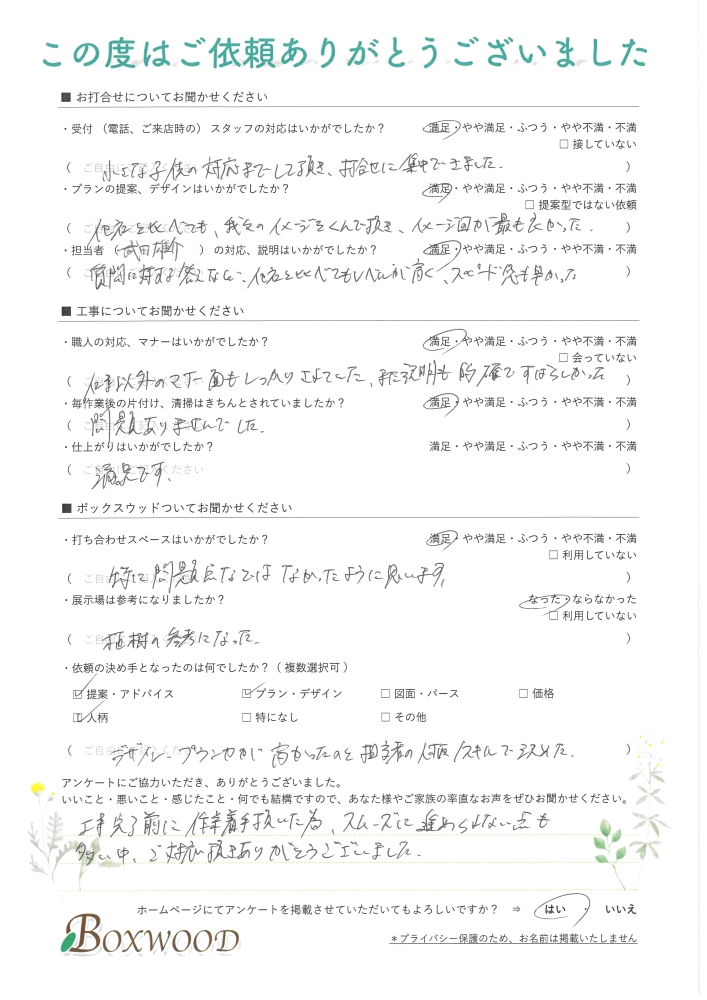 この度はご依頼ありがとうございました
■ お打合せについてお聞かせください
・受付 （電話、ご来店時の） スタッフの対応はいかがでしたか？ 満足・やや満足・ふつう・やや不満・不満
□ 接していない
（ 小さな子供の対応までして頂き、打合せに集中できました。 ）
・プランの提案、デザインはいかがでしたか？ 満足・やや満足・ふつう・やや不満・不満
□ 提案型ではない依頼
（ 他社と比べても、我々のイメージをくんで頂き、イメージ図が最も良かった。 ）
・担当者 （ 武田雄介 ） の対応、説明はいかがでしたか？ 満足・やや満足・ふつう・やや不満・不満
（ 質問に対する答えなど、他社と比べてもレベルが高く、スピード感も早かった ）
■ 工事についてお聞かせください
・職人の対応、マナーはいかがでしたか？ 満足・やや満足・ふつう・やや不満・不満
□ 会っていない
（ 仕事以外のマナー面もしっかりされていた、また説明も的確ですばらしかった ）
・毎作業後の片付け、清掃はきちんとされていましたか？ 満足・やや満足・ふつう・やや不満・不満
（ 問題ありませんでした。 ）
・仕上がりはいかがでしたか？ 満足・やや満足・ふつう・やや不満・不満
（ 満足です。 ）
■ ボックスウッドついてお聞かせください
・打ち合わせスペースはいかがでしたか？ 満足・やや満足・ふつう・やや不満・不満
□ 利用していない
（ 特に問題点などはなかったように思います。 ）
・展示場は参考になりましたか？ なった・ならなかった
□ 利用していない
（ 植樹の参考になった。 ）
・依頼の決め手となったのは何でしたか？（ 複数選択可 ）
☑ 提案・アドバイス ☑ プラン・デザイン □ 図面・パース □ 価格
☑ 人柄 □ 特になし □ その他
（ デザイン・プランせが高かったのと担当者の人柄/スキルで決めた。 ）
アンケートにご協力いただき、ありがとうございました。
いいこと・悪いこと・感じたこと・何でも結構ですので、あなた様やご家族の率直なお声をぜひお聞かせください。
工事完了前に作業着手頂いた為、スムーズに進められない点も
多い中、ご対応頂きありがとうございました。
ホームページにてアンケートを掲載させていただいてもよろしいですか？ ⇒ はい ・ いいえ
BOXWOOD
＊プライバシー保護のため、お名前は掲載いたしません